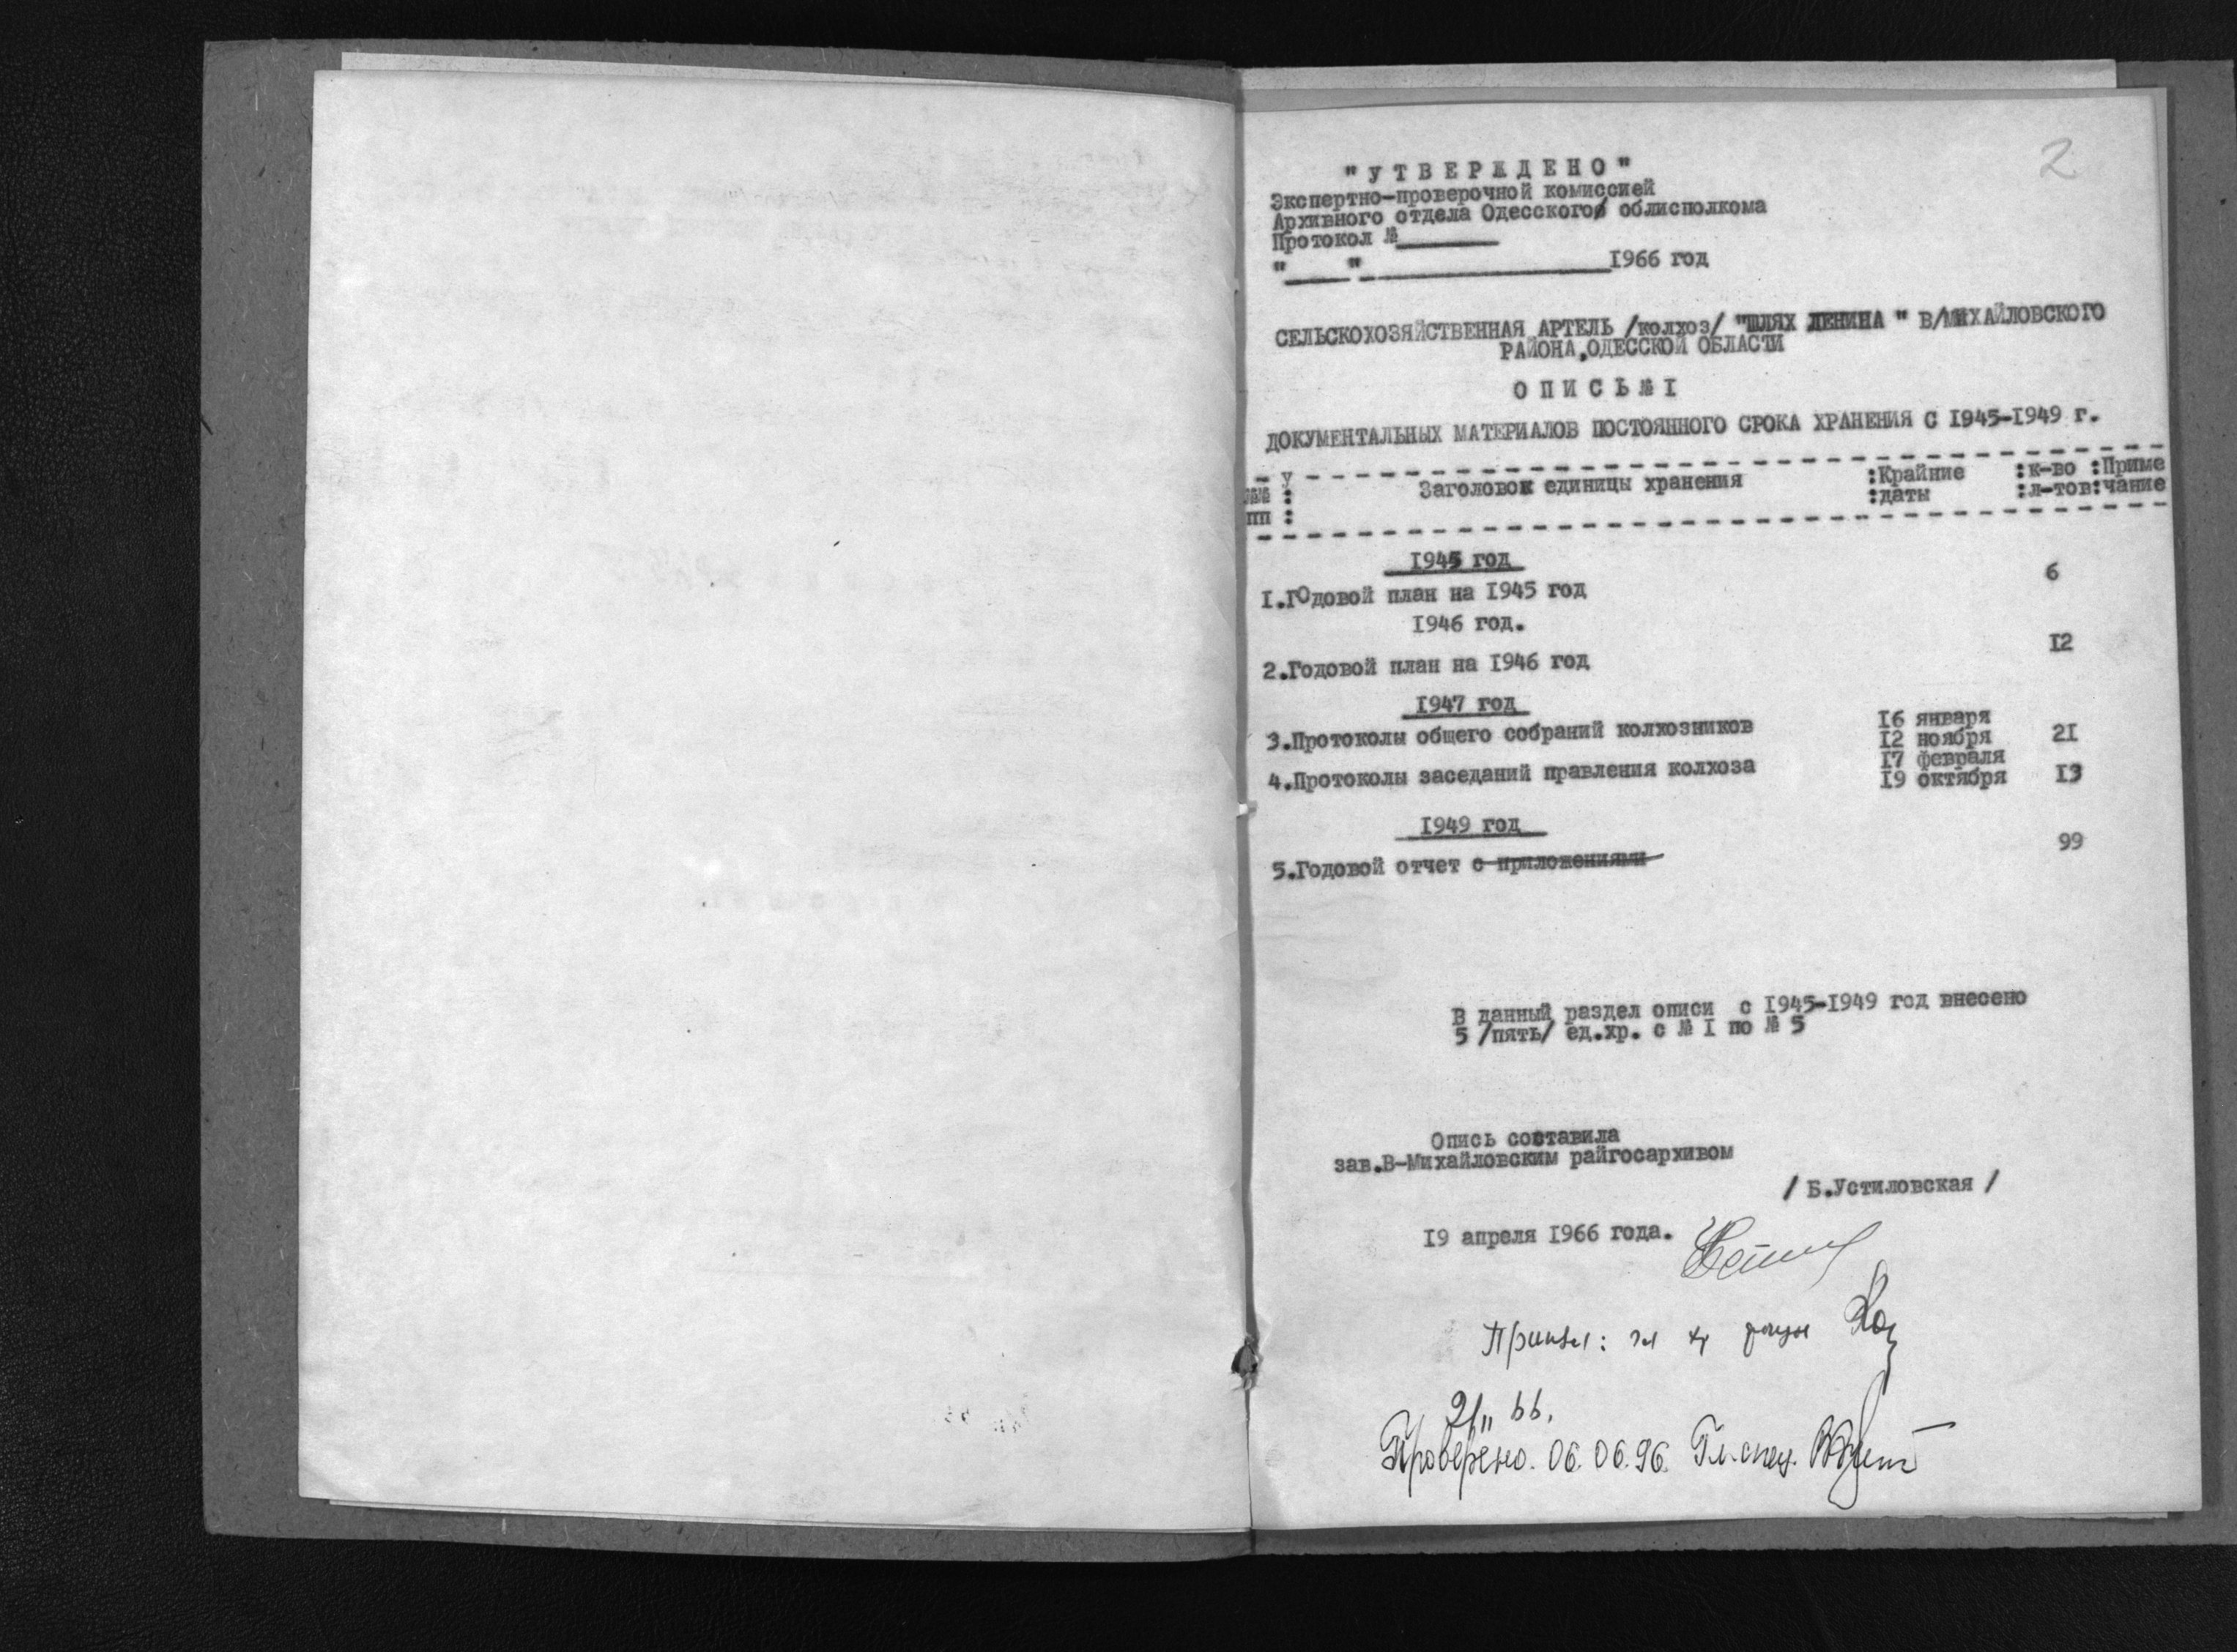 2
"УТВЕРЖДЕНО"
Экспертно-проверочной комиссией
Архивного отдела Одесского облисполкома
Протокол №________
"____"________________1966 год
СЕЛЬСКОХОЗЯЙСТВЕННАЯ АРТЕЛЬ /колхоз/ "ШЛЯХ ЛЕНИНА " В/МИХАЙЛОВСКОГО
РАЙОНА,ОДЕССКОЙ ОБЛАСТИ
ОПИСЬ№ I
ДОКУМЕНТАЛЬНЫХ МАТЕРИАЛОВ ПОСТОЯННОГО СРОКА ХРАНЕНИЯ С 1945-1949 г.
№№ : Заголовок единицы хранения :Крайние :к-во :Приме
пп : :даты :л-тов:чание
1945 год
I.ГОдовой план на 1945 год 6
1946 год.
2.Годовой план на 1946 год I2
1947 год
16 января
3.Протоколы общего собраний колхозников 12 ноября 2I
17 февраля
4.Протоколы заседаний правления колхоза 19 октября I3
1949 год
5.Годовой отчет с приложениями 99
В данный раздел описи с 1945-1949 год внесено
5 /пять/ ед.хр. с № I по № 5
Опись составила
зав.В-Михайловским райгосархивом
/ Б.Устиловская /
19 апреля 1966 года.
Принял:
66.
Проверено. 06.06.96. Гл.спец.